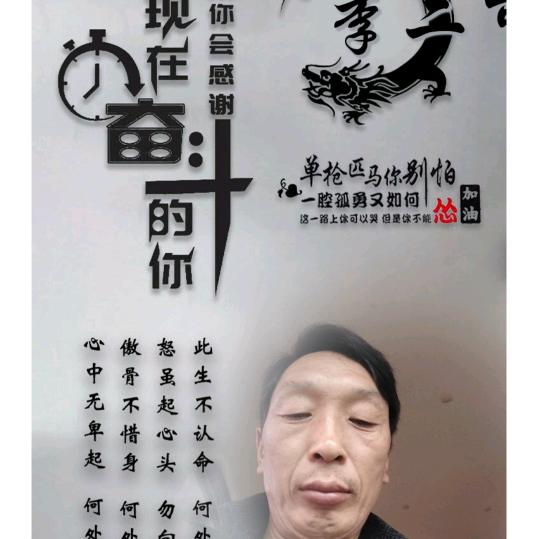 你会感谢
现在奋斗的你
李
单枪匹马你别怕
一腔孤勇又如何
这一路上你可以哭 但是你不能
怂
加油
此生不认命 何处
怒虽起心头 勿向
傲骨不惜身 何处
心中无卑起 何处